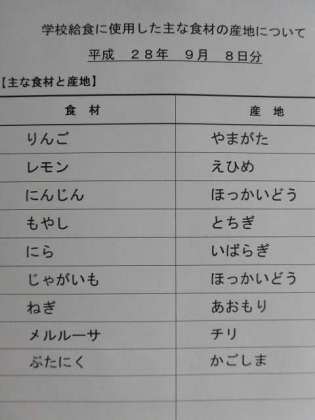 学校給食に使用した主な食材の産地について
平成 28年 9月 8日分
【主な食材と産地】
食 材 産 地
りんご やまがた
レモン えひめ
にんじん ほっかいどう
もやし とちぎ
にら いばらぎ
じゃがいも ほっかいどう
ねぎ あおもり
メルルーサ チリ
ぶたにく かごしま